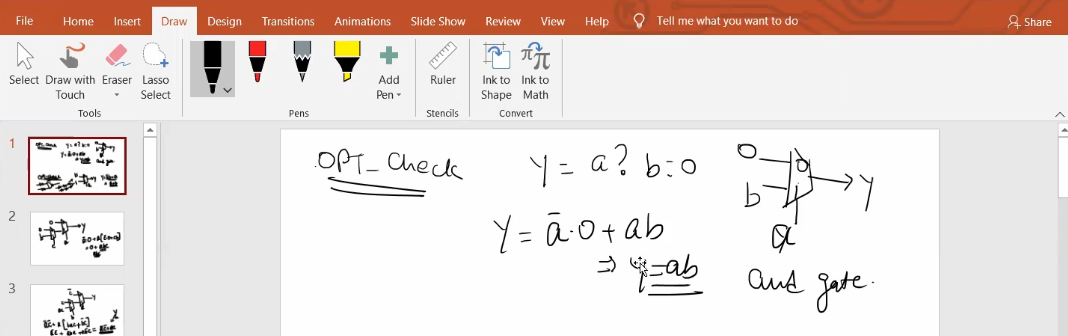 File Home Insert Draw Design Transitions Animations Slide Show Review View Help Tell me what you want to do Share
Select Draw with Touch Eraser Lasso Select Add Pen Ruler Ink to Shape Ink to Math
Tools Pens Stencils Convert
1
2
3
OPT_Check
y = a? b:0
Y = ā·0 + ab
⇒ Y=ab
0
0
b
Y
a
and gate.